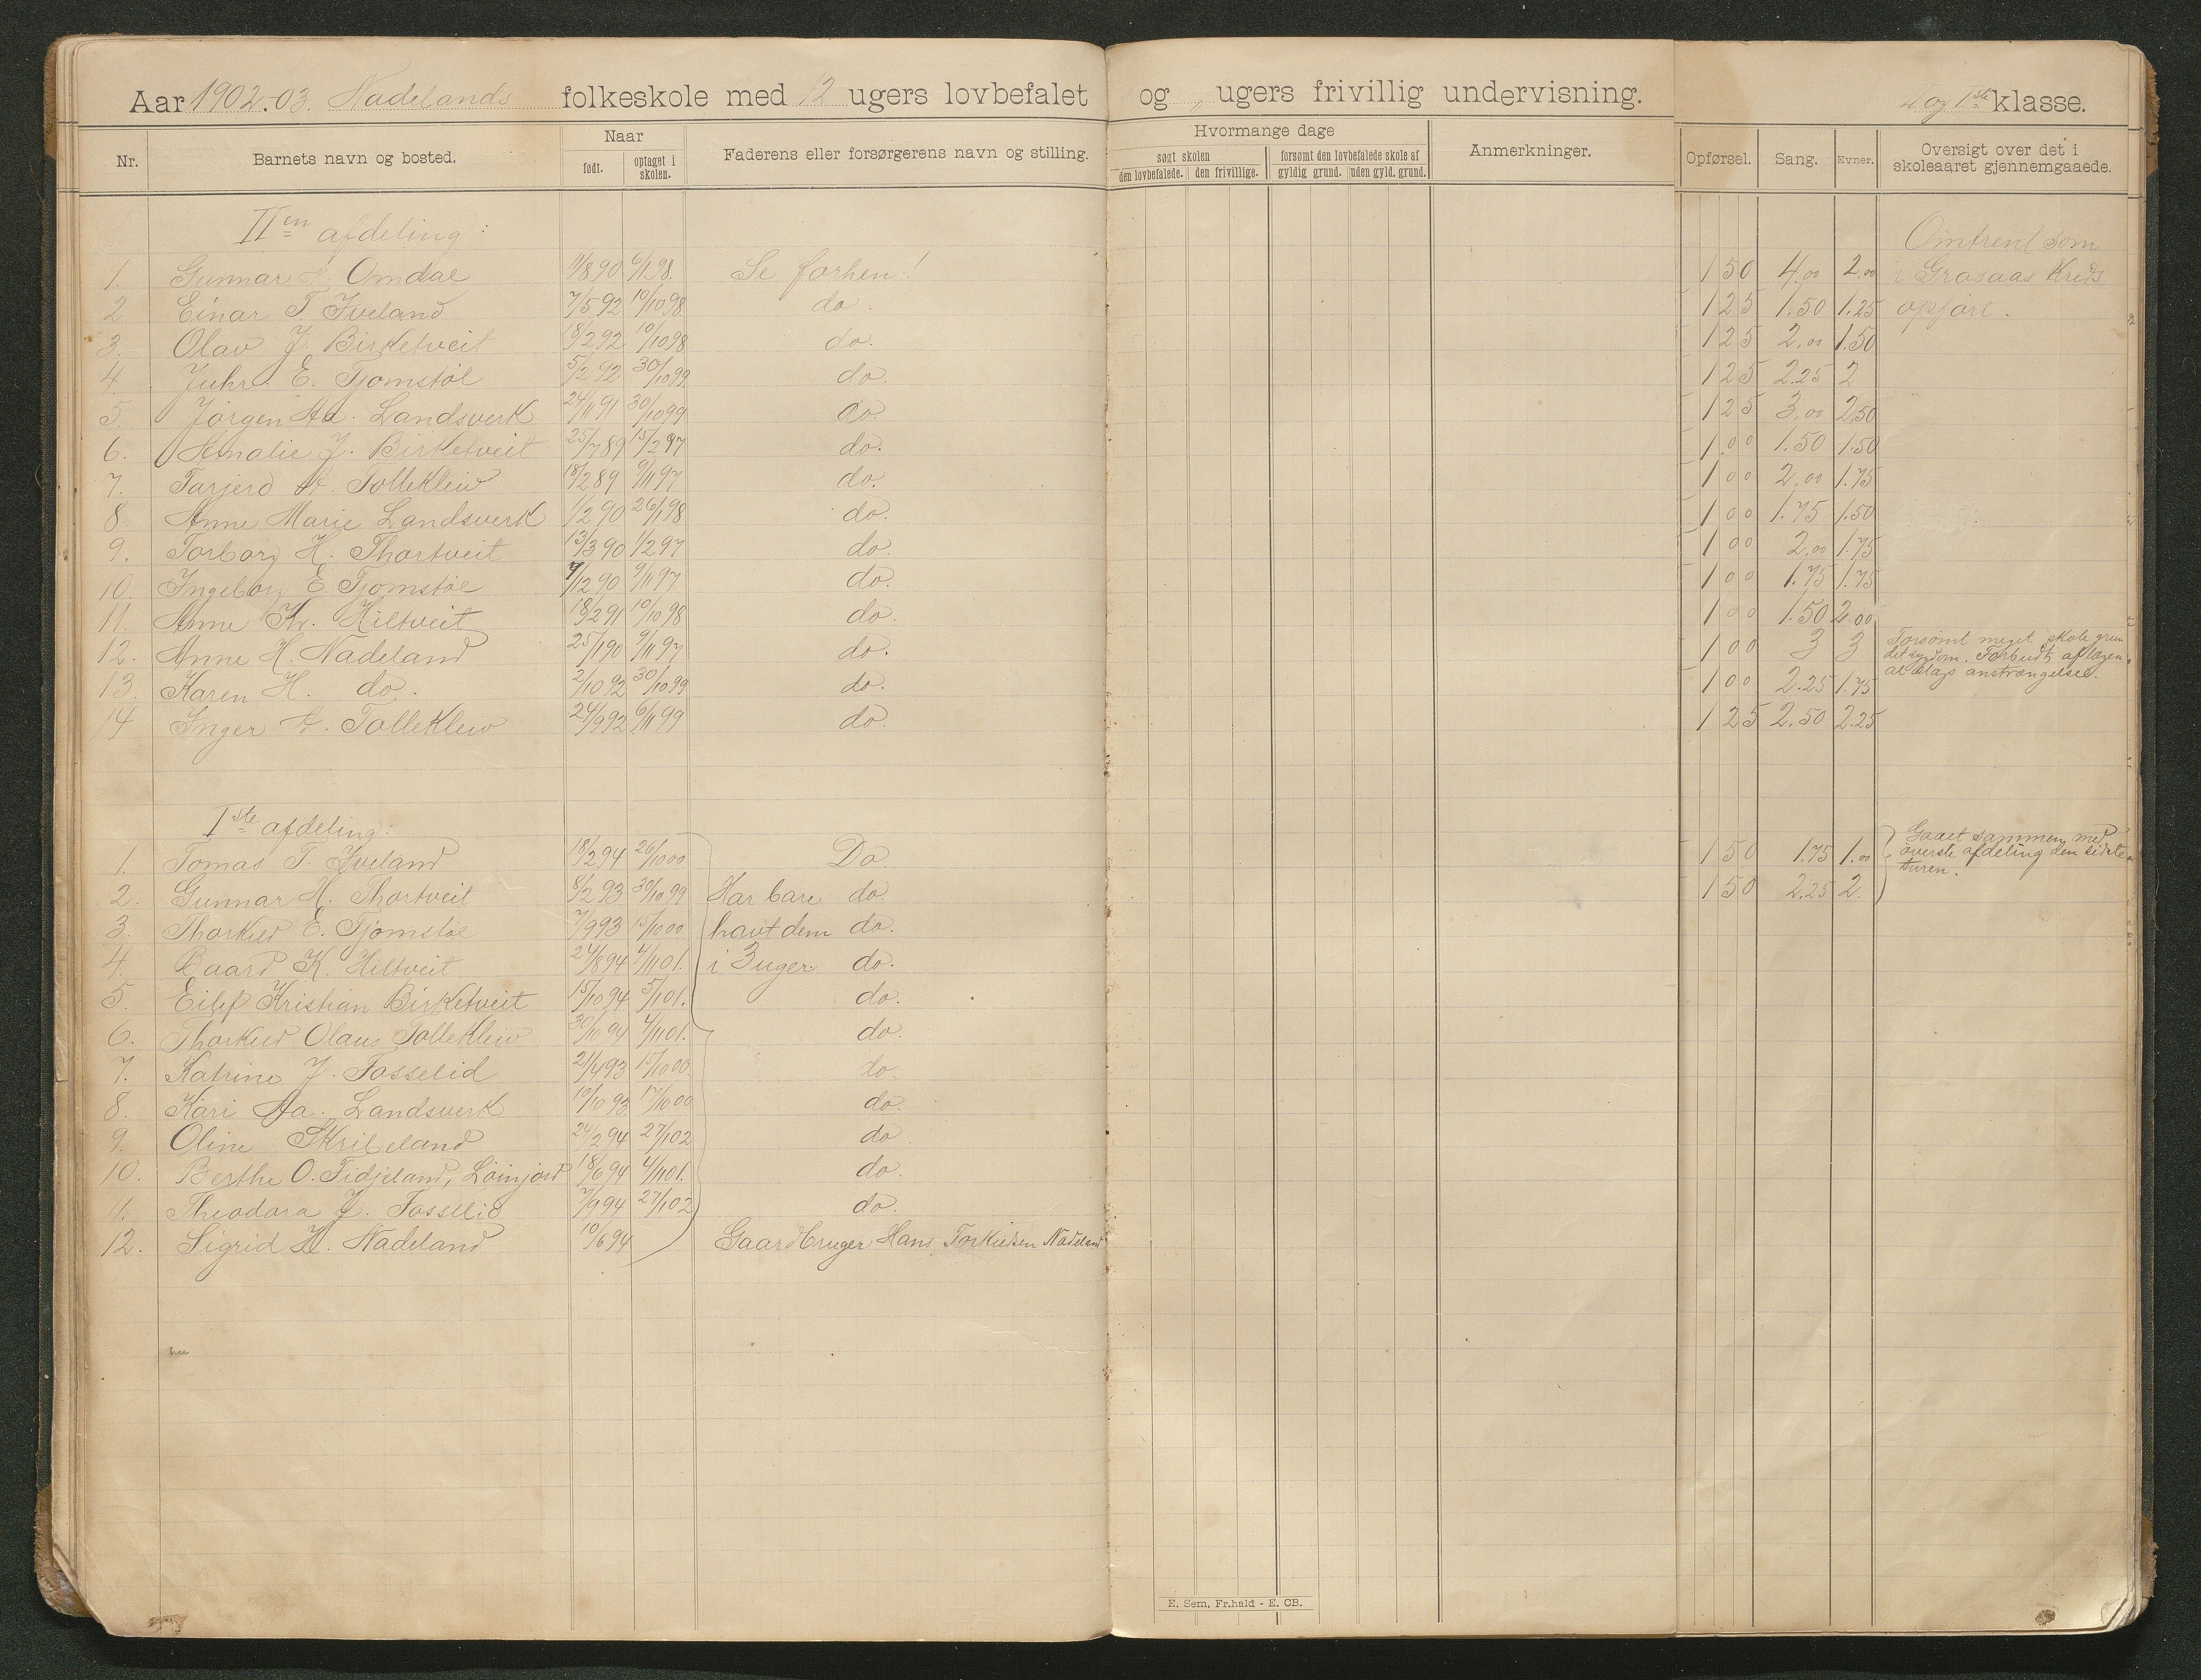 Aar 1902-03. Nadelands folkeskole med 12 ugers lovbefalet og , ugers frivillig undervisning. og 1ste klasse.
Nr. Barnets navn og bosted. Naar Faderens eller forsørgerens navn og stilling. Hvormange dage Anmerkninger. Opførsel. Sang. Evner. Oversigt over det i skoleaaret gjennemgaaede.
født. optaget i skolen. søgt skolen forsømt den lovbefalede skole af
den lovbefalede. den frivillige. gyldig grund. uden gyld. grund.
IIen afdeling: Omtrent som
1. Gunnar Omdal 11/8 90 6/1 98. Se forhen! 1 50 4.00 2.00 i Grasaas Kreds
2. Einar T. Iveland 7/5 92 10/10 98 do. 1 25 1.50 1.25 opført.
3. Olav J. Birketveit 18/2 92 10/10 98 do. 1 25 2.00 1.50
4. Juhr. E. Tjomstøl 5/2 92 30/10 99 do. 1 25 2.25 2
5. Jørgen Aa. Landsverk 24/11 91 30/10 99 do. 1 25 3.00 2.50
6. Amalie J. Birketveit 25/7 89 15/2 97 do. 1 00 1.50 1.50
7. Tarjerd A. Tolleklew 18/2 89 9/11 97 do. 1 00 2.00 1.75
8. Anne Marie Landsverk 1/2 90 26/1 98 do. 1 00 1.75 1.50
9. Torborg H. Thortveit 13/3 90 1/2 97 do. 1 00 2.00 1.75
10. Ingeborg E Tjomstøl 7/12 90 9/11 97 do. 1 00 1.75 1.75
11. Anne K. Hiltveit 18/2 91 10/10 98 do. 1 00 1.50 2.00
12. Anne H. Nadeland 25/1 90 9/11 97 do. 1 00 3 3 Forsømt meget skole grun
det sygdom. Forbudt af lægen
13. Karen H. do. 2/10 92 30/10 99 do. 1 00 2.25 1.75 al slags anstrængelse.
14 Inger A. Tolleklew 24/9 92 6/11 99 do. 1 25 2.50 2.25
Iste afdeling:
1. Tomas T. Iveland 18/2 94 26/10 00 Do. 1 50 1.75 1.00 Gaaet sammen med
øverste afdeling den sidste
2. Gunnar H. Thortveit 8/2 93 30/10 99 Har bare do. 1 50 2.25 2. turen.
3. Thorkild E. Tjømstøl 7/9 93 15/10 00 havt dem do.
4. Baard K. Hiltveit 24/8 94 4/11 01. i 3 uger do.
5. Eilef Kristian Birketveit 15/10 94 5/1 01. do.
6. Thorkild Olaus Tolleklew 30/10 94 4/11 01. do.
7. Katrine J. Fosselid 21/4 93 15/10 00. do.
8. Kari Aa. Landsverk 10/10 93 17/10 00 do.
9. Oline Skribeland 24/2 94 27/1 02 do.
10. Berthe O. Tidjeland, Løinjord 18/6 94 4/11 01. do.
11. Theodora J. Fosselid 7/9 94 27/1 02 do.
12. Sigrid H. Nadeland 10/6 94 Gaardbruger Hans Torkildsen Nadeland
E. Sem, Fr.hald - E. CB.